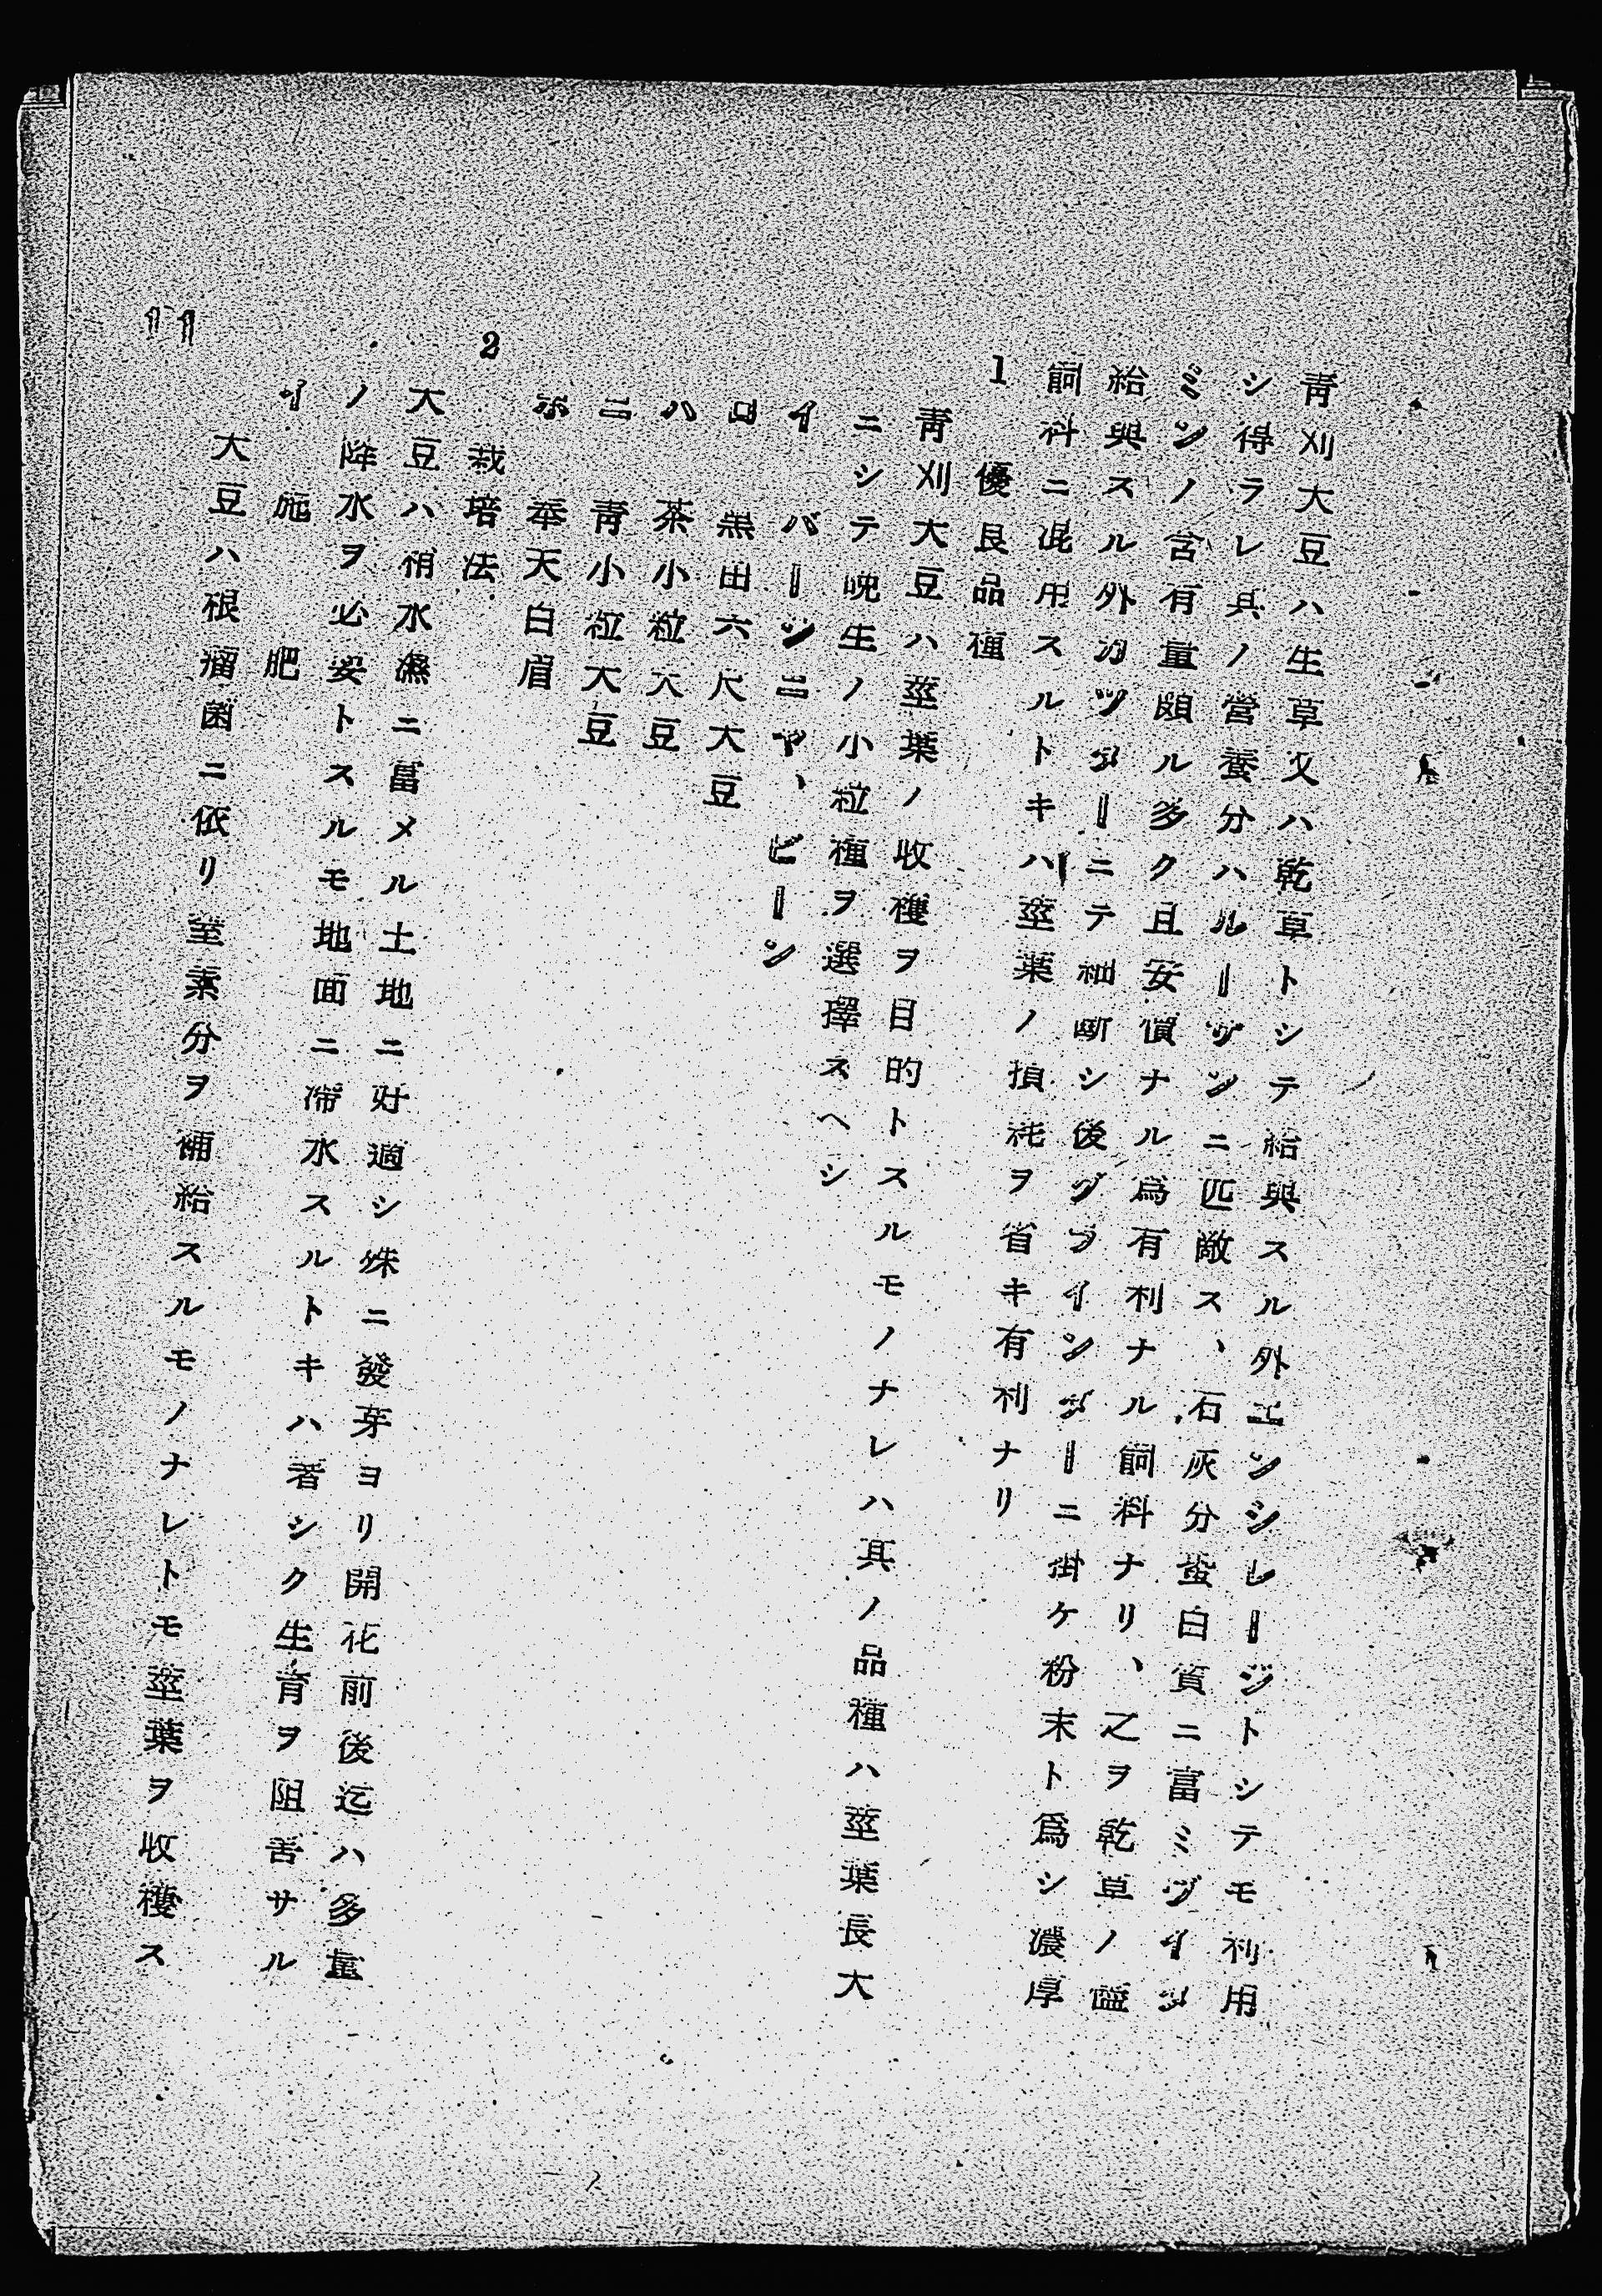 靑刈大豆ハ生草又ハ乾草トシテ給與スル外エンシレージトシテモ利用
シ得ラレ其ノ營養分ハルーサンニ匹敵ス、石灰分蛋白質ニ富ミヴイタ
ミンノ含有量頗ル多ク且安價ナル爲有利ナル飼料ナリ、之ヲ乾草ノ儘
給與スル外カツターニテ細斷シ後グラインダーニ掛ケ粉末ト爲シ濃厚
飼料ニ混用スルトキハ莖葉ノ損耗ヲ省キ有利ナリ
1 優良品種
靑刈大豆ハ莖葉ノ收穫ヲ目的トスルモノナレハ其ノ品種ハ莖葉長大
ニシテ晩生ノ小粒種ヲ選擇スヘシ
イ バージニヤ、ビーン
ロ 黑田六尺大豆
ハ 茶小粒大豆
ニ 靑小粒大豆
ホ 奉天白眉
2 栽培法
大豆ハ稍水濕ニ富メル土地ニ好適シ殊ニ發芽ヨリ開花前後迄ハ多量
ノ降水ヲ必要トスルモ地面ニ滯水スルトキハ著シク生育ヲ阻害サル
イ 施肥
大豆ハ根瘤菌ニ依リ窒素分ヲ補給スルモノナレトモ莖葉ヲ收穫ス